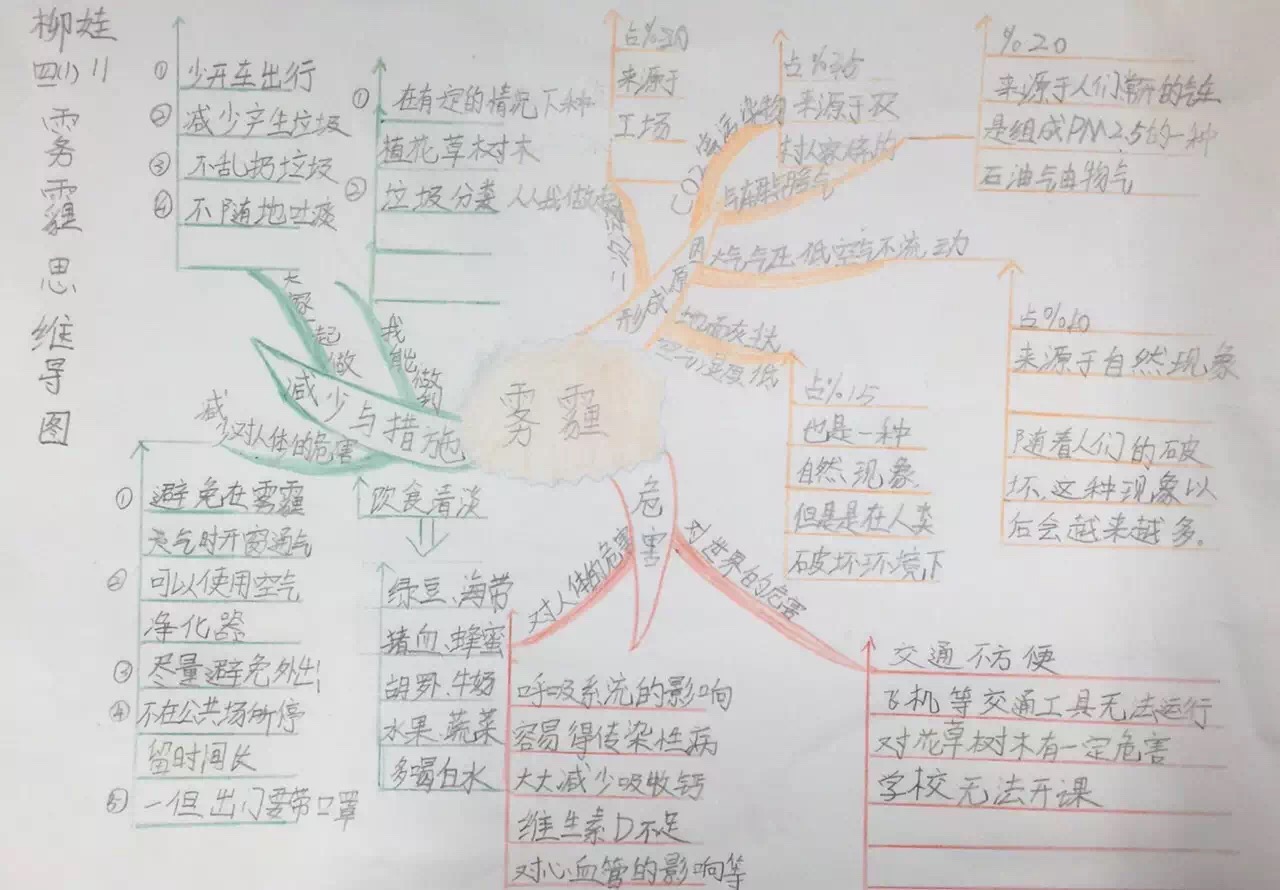 柳娃
四(1) 11
雾霾思维导图
① 少开车出行
② 减少产生垃圾
③ 不乱扔垃圾
④ 不随地吐痰
大家一起做
① 在有定的情况下种
植花草树木
② 垃圾分类 人人我做起
我能做到
减少与措施
减少对人体的危害
① 避免在雾霾
天气时开窗通气
② 可以使用空气
净化器
③ 尽量避免外出
④ 不在公共场所停
留时间长
⑤ 一但出门要带口罩
饮食清淡
绿豆、海带
猪血、蜂蜜
胡罗、牛奶
水果、蔬菜
多喝白水
雾霾
形成原因
占%20
来源于
工场
占%35
来源于农
村人家烧的
%20
来源于人们常开的汽车
是组成PM2.5的一种
石油气由物气
大气气压低空气不流动
占%10
来源于自然现象
随着人们的破
坏,这种现象以
后会越来越多。
地面灰扶
空气湿度低
占%15
也是一种
自然现象
但是是在人类
破坏环境下
危害
对人体的危害
呼吸系流的影响
容易得传染性病
大大减少吸收钙
维生素D不足
对心血管的影响等
对世界的危害
交通不方便
飞机等交通工具无法运行
对花草树木有一定危害
学校无法开课